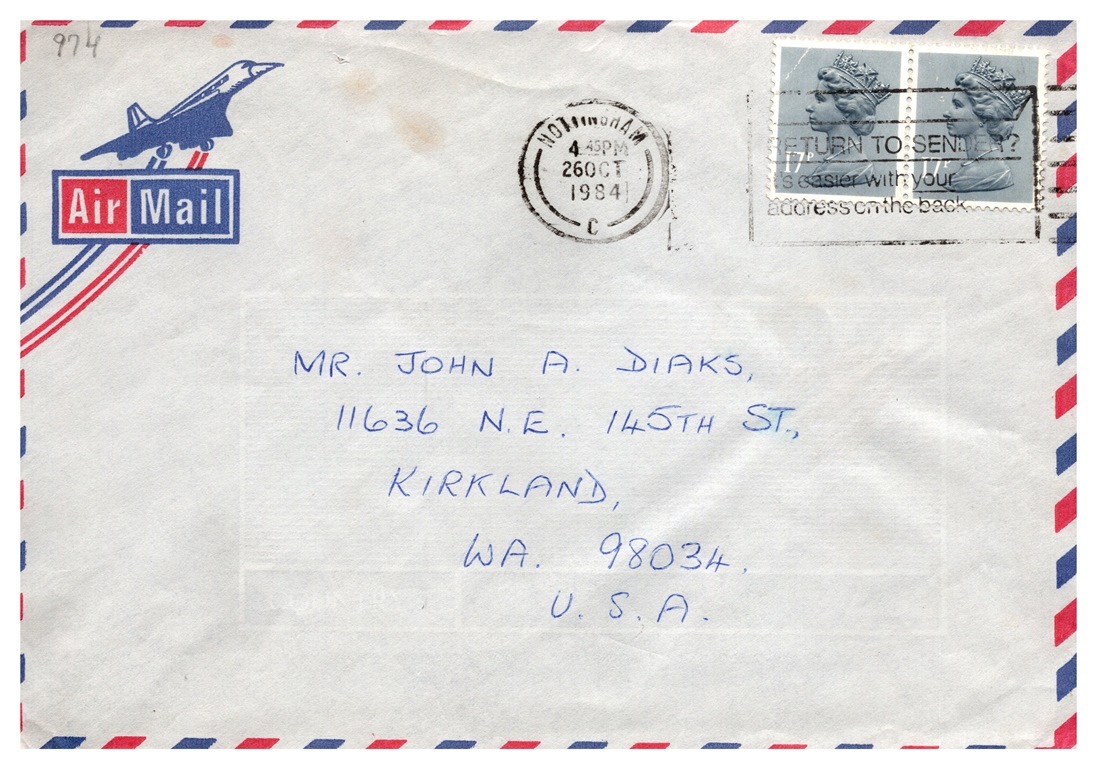 974
Air Mail
NOTTINGHAM
4.45PM
26OCT
1984
C
17P
17P
RETURN TO SENDER?
It's easier with your
address on the back
MR. JOHN A. DIAKS,
11636 N.E. 145TH ST.,
KIRKLAND,
WA. 98034.
U. S. A.